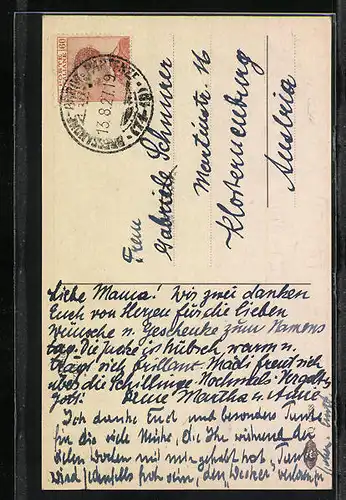 60
BRESSANONE
13.8.27.19
Frau
Gabriele Schurrer
Martinstr. 16
Klosterneuburg
Austria
Liebe Mama! Wir zwei danken
Euch von Herzen für die lieben
Wünsche u. Geschenke zum Namens
tag. Die Jacke ist hübsch, warm u.
trägt sich brillant. Mädi freut sich
über die Schillinge. Nochmals Vergelts
gott! Deine Martha u. Anne
Ich danke Euch und besonders Tante
für die viele Mühe, die Ihr während der
Wochen mit mir gehabt habt,
wird jedenfalls froh sein, den "Wecker"